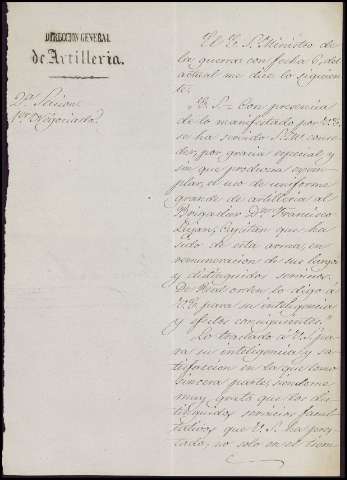 DIRECCION GENERAL
de Artilleria.
2ª Seccion
1er Negociado
El E. S. Ministro de
la guerra con fecha 6 del
actual me dice lo siguien
te.
"E. S. = Con presencia
de lo manifestado por V.E.
se ha servido S. M. conce
der, por gracia especial y
sin que produzca ejem
plar, el uso de uniforme
grande de artilleria al
Brigadier Dn. Francisco
Lujan, Capitan que ha
sido de esta arma, en
remuneracion de sus largos
y distinguidos servicios.
De Real orden lo digo á
V.E. para su inteligencia
y efectos consiguientes."
Lo traslado á V.S. pa
ra su inteligencia y sa
tisfaccion en la que tomo
sincera parte, siendome
muy grato que los dis
tinguidos servicios facul
tativos que V.S. ha pres
tado, no solo en el tiem